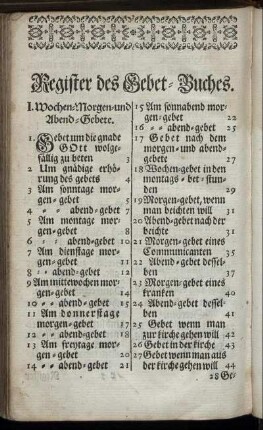 Register des Gebet-Buches.
I. Wochen-Morgen-und
Abend-Gebete.
1. Gebet um die gnade
GOtt wolge-
fällig zu beten 3
2 Um gnädige erhö-
rung des gebets 4
3 Am sonntage mor-
gen-gebet 4
4 = = abend-gebet 6
5 Am montage mor-
gen-gebet 8
6 = = abend-gebet 10
7 Am dienstage mor-
gen-gebet 11
8 = abend-gebet 12
9 Am mittewochen mor-
gen-gebet 14
10 = = abend-gebet 15
11 Am donnerstage
morgen-gebet 17
12 = = abend-gebet 18
13 Am freytage mor-
gen-gebet 20
14 = = abend-gebet 21
15 Am sonnabend mor-
gen-gebet 22
16 = = abend-gebet 25
17 Gebet nach dem
morgen- und abend-
gebete 27
18 Wochen-gebet in den
montags-bet-stun-
den 29
19 Morgen-gebet, wenn
man beichten will 31
20 Abend-gebet nach der
beichte 31
21 Morgen-gebet eines
Communicanten 35
22 Abend-gebet dessel-
ben 37
23 Morgen-gebet eines
kranken 40
24 Abend-gebet dessel-
ben 41
25 Gebet wenn man
zur kirche gehen will 42
26 Gebet in der kirche 43
27 Gebet wenn man aus
der kirche gehen will 44
28 Ge-